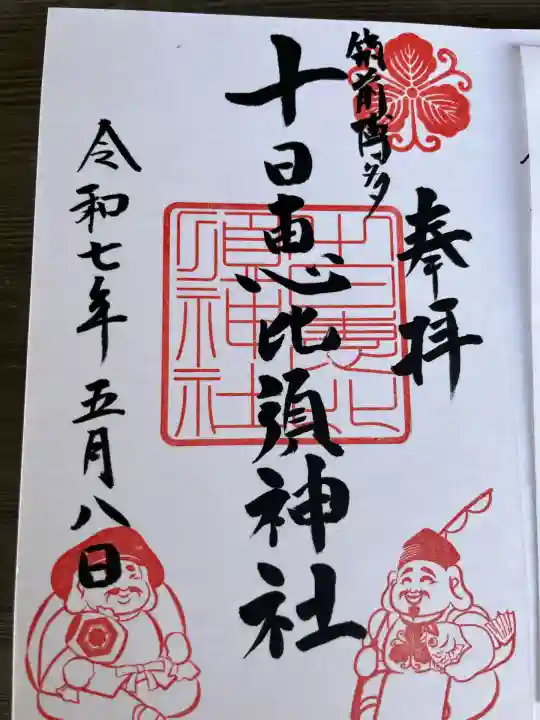 筑前博多
奉拝
十日恵比須神社
十日恵比須神社
令和七年五月八日